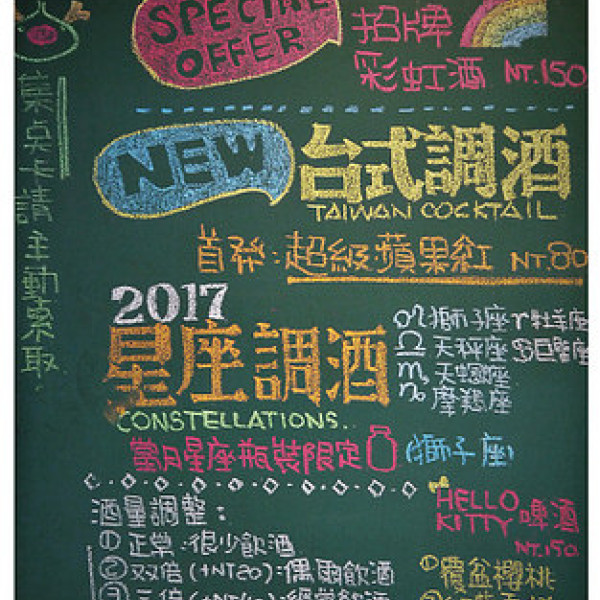 SPECIAL
OFFER
招牌
彩虹酒 NT.150
NEW
台式調酒
TAIWAN COCKTAIL
首發:超級蘋果紅 NT.80
集点卡請主動索取
2017
星座調酒
CONSTELLATIONS.
♌獅子座 ♈牡羊座
♎天秤座 ♋巨蟹座
♏天蠍座
♑摩羯座
當月星座瓶裝限定 (獅子座)
酒量調整:
①正常:很少飲酒
②双倍(+NT20):偶爾飲酒
HELLO
KITTY 啤酒
NT.150
①覆盆櫻桃